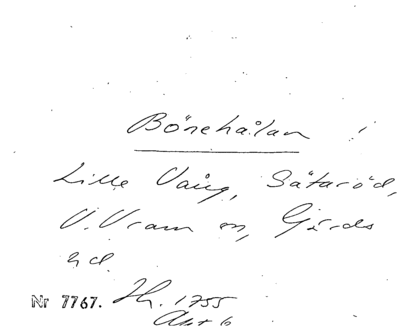 Bönehålan
Lille Vång, Sätaröd,
V. Vram sn, Gärds
hd.
Nr 7767. Hh. 1755
Akt 6